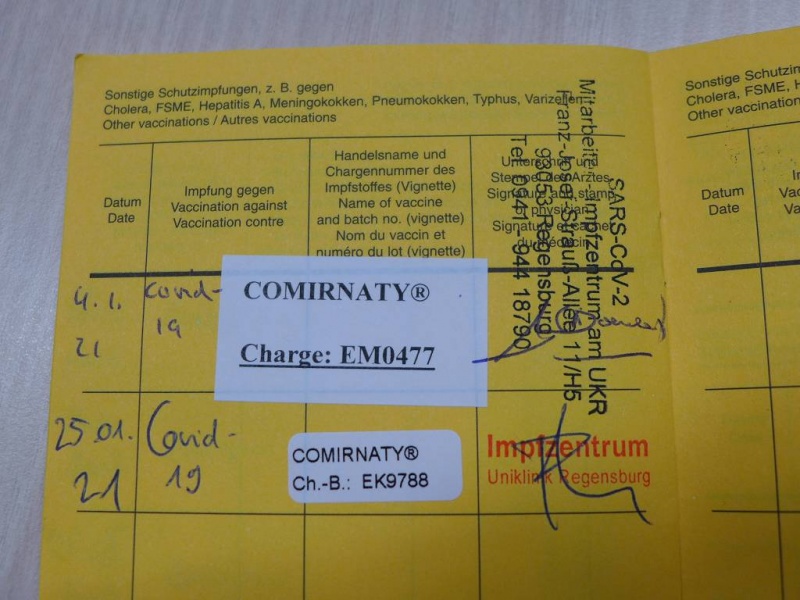 Sonstige Schutzimpfungen, z. B. gegen
Cholera, FSME, Hepatitis A, Meningokokken, Pneumokokken, Typhus, Varizellen
Other vaccinations / Autres vaccinations
Datum
Date
Impfung gegen
Vaccination against
Vaccination contre
Handelsname und
Chargennummer des
Impfstoffes (Vignette)
Name of vaccine
and batch no. (vignette)
Nom du vaccin et
numéro du lot (vignette)
Unterschrift und
Stempel des Arztes
Signature and stamp
of physician
Signature et cachet
du médecin
SARS-CoV-2
Mitarbeiter Impfzentrum am UKR
Franz-Josef-Strauß-Allee 11/H5
93053 Regensburg
Tel. 0941 - 944 18790
4.1.
21
Covid-
19
COMIRNATY®
Charge: EM0477
25.01.
21
Covid-
19
COMIRNATY®
Ch.-B.: EK9788
Impfzentrum
Uniklinik Regensburg
Sonstige Schutzim
Cholera, FSME, H
Other vaccinations
Datum
Date